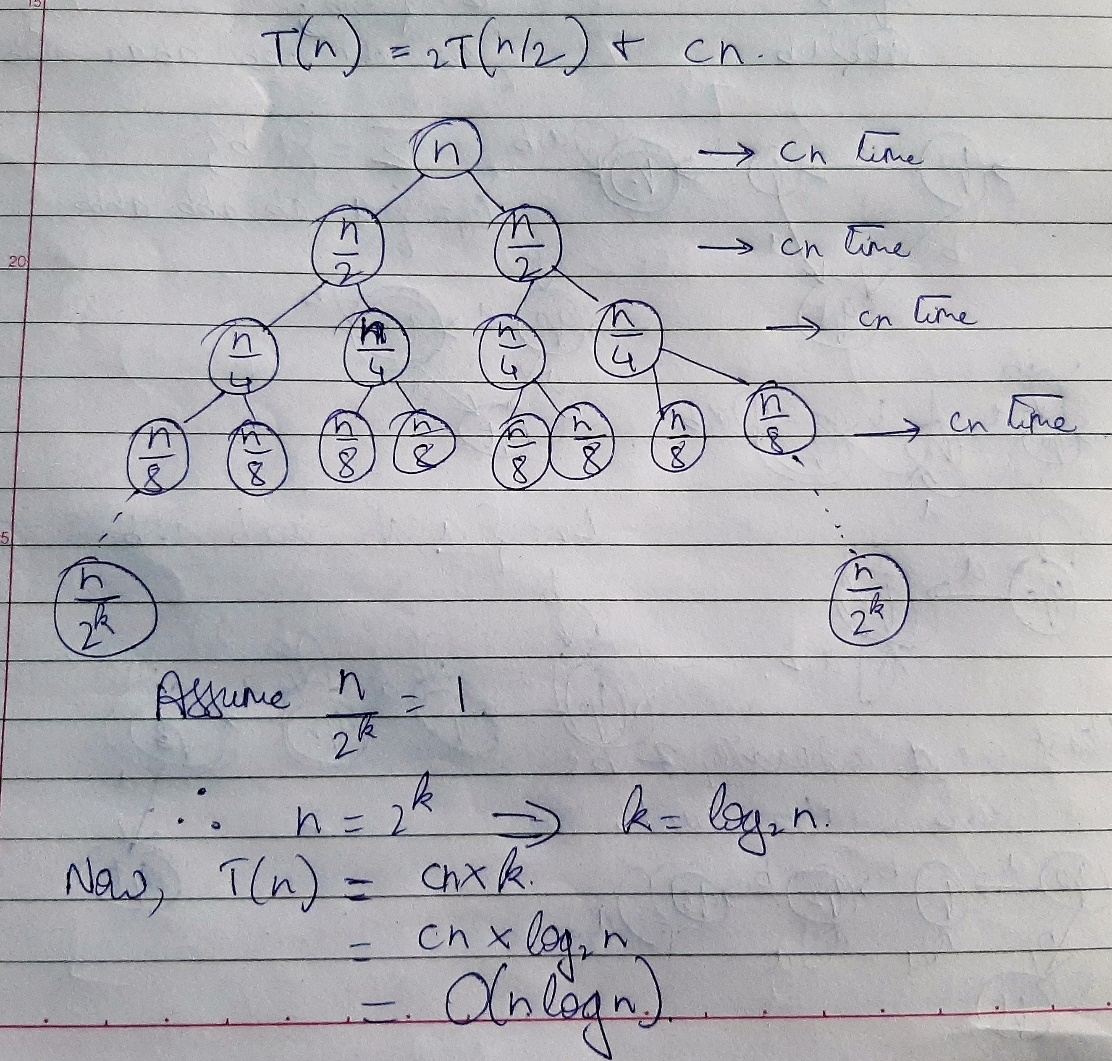 T(n) = 2T(n/2) + cn.
n → cn time
n/2 n/2 → cn time
n/4 n/4 n/4 n/4 → cn time
n/8 n/8 n/8 n/8 n/8 n/8 n/8 n/8 → cn time
n/2^k n/2^k
Assume n/2^k = 1.
∴ n = 2^k ⇒ k = log₂n.
Now, T(n) = cn×k.
= cn × log₂n
= O(n logn).